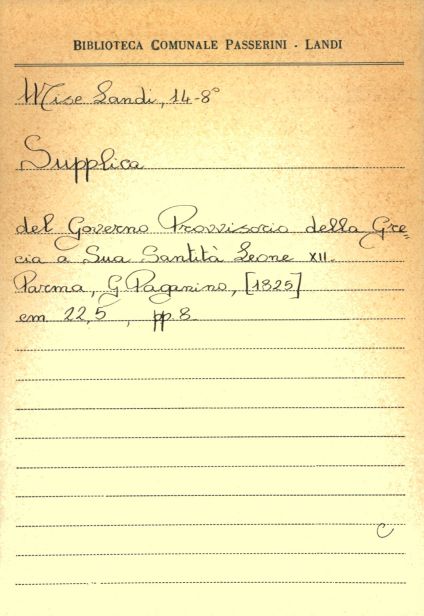 BIBLIOTECA COMUNALE PASSERINI - LANDI
Misc Landi, 14-8°
Supplica
del Governo Provvisorio della Gre=
cia a Sua Santità Leone XII.
Parma, G. Paganino, [1825]
cm 22,5, pp. 8.
C